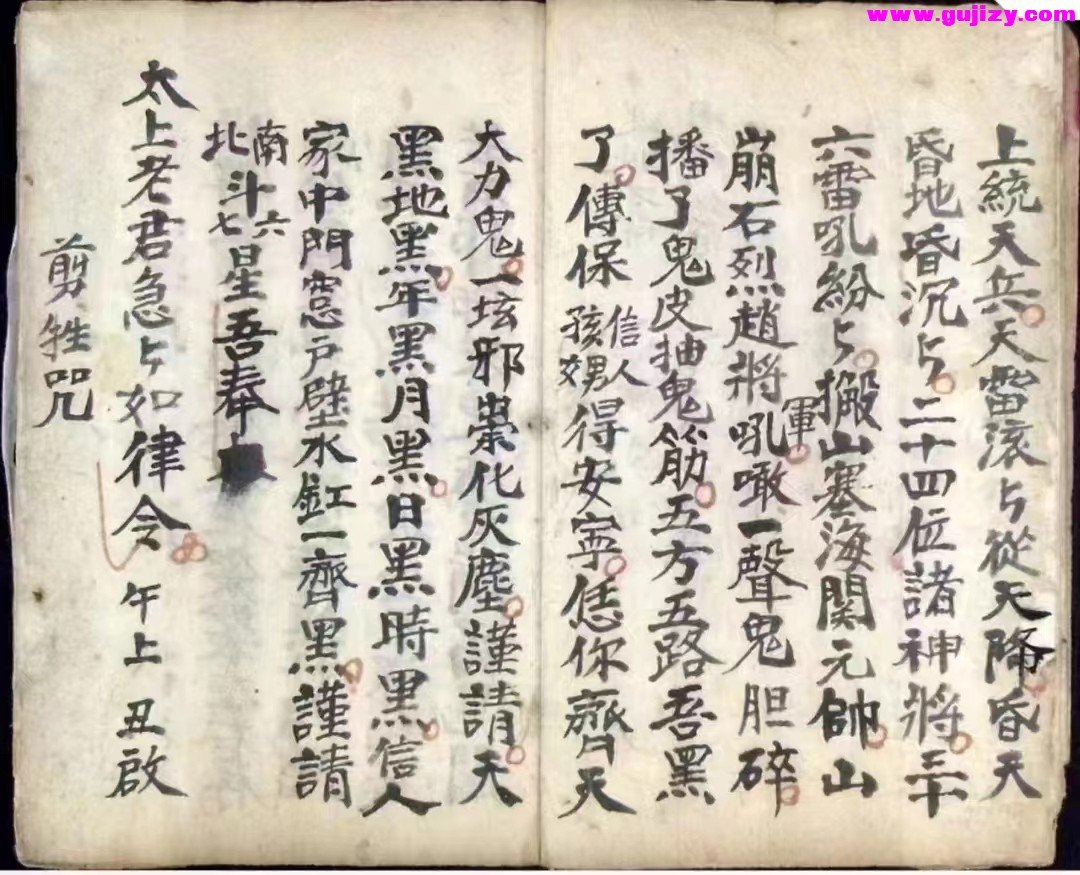 www.gujizy.com
上統天兵天雷滚々從天降昏天
昏地昏沉々二十四位諸神將三十
六雷吼紛々搬山塞海関元帥山
崩石烈趙將軍吼噉一聲鬼胆碎
播了鬼皮抽鬼筋五方五路吾黑
了傳保信人孩男女得安寧恁你齊天
大力鬼一垓邪祟化灰塵謹請天
黑地黑年黑月黑日黑時黑信人
家中門窓户壁水缸一齊黑謹請
南北斗六七星吾奉
太上老君急々如律令 午上 丑啟
剪牲咒